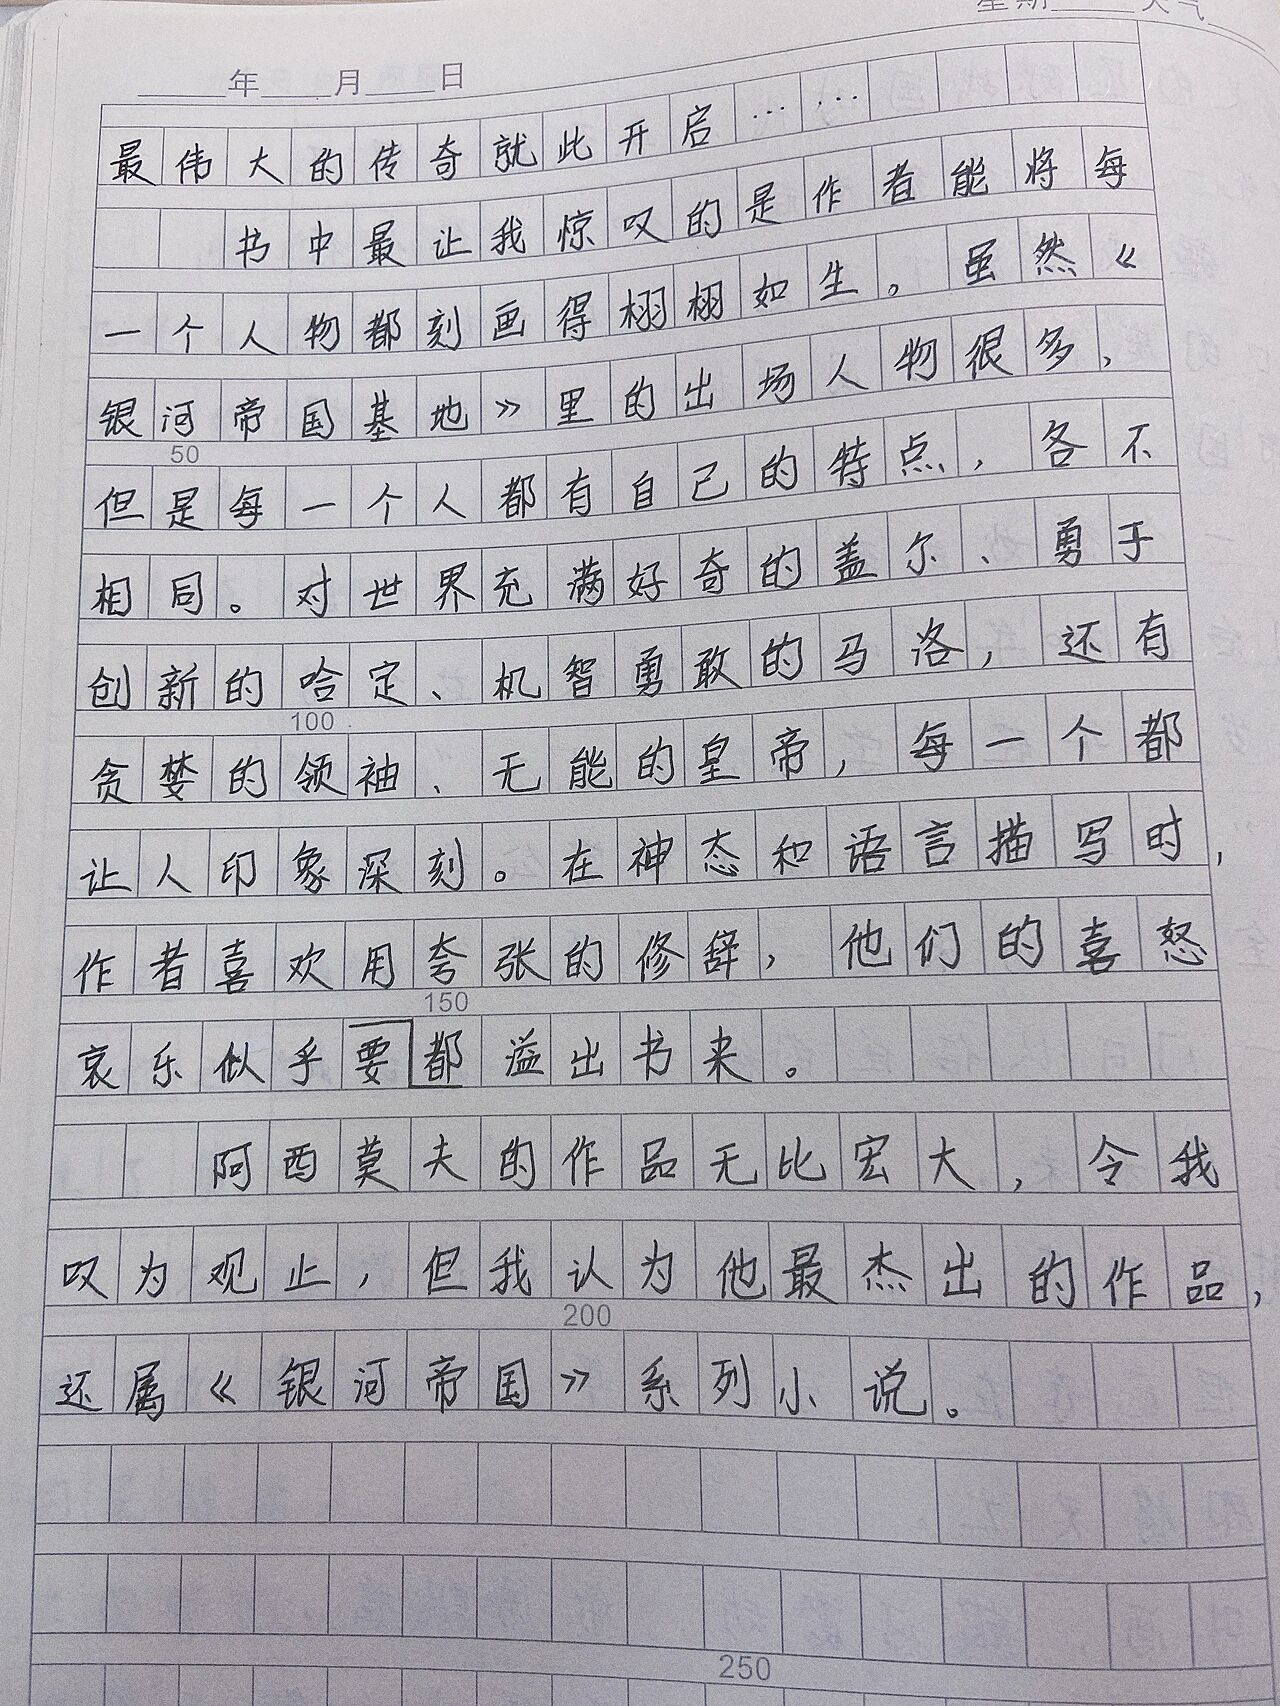 星期____天气
____年____月____日
最伟大的传奇就此开启……
书中最让我惊叹的是作者能将每
一个人物都刻画得栩栩如生。虽然《
银河帝国基地》里的出场人物很多，
50
但是每一个人都有自己的特点，各不
相同。对世界充满好奇的盖尔、勇于
创新的哈定、机智勇敢的马洛，还有
100
贪婪的领袖、无能的皇帝，每一个都
让人印象深刻。在神态和语言描写时，
作者喜欢用夸张的修辞，他们的喜怒
150
哀乐似乎要都溢出书来。
阿西莫夫的作品无比宏大，令我
叹为观止，但我认为他最杰出的作品，
200
还属《银河帝国》系列小说。
250